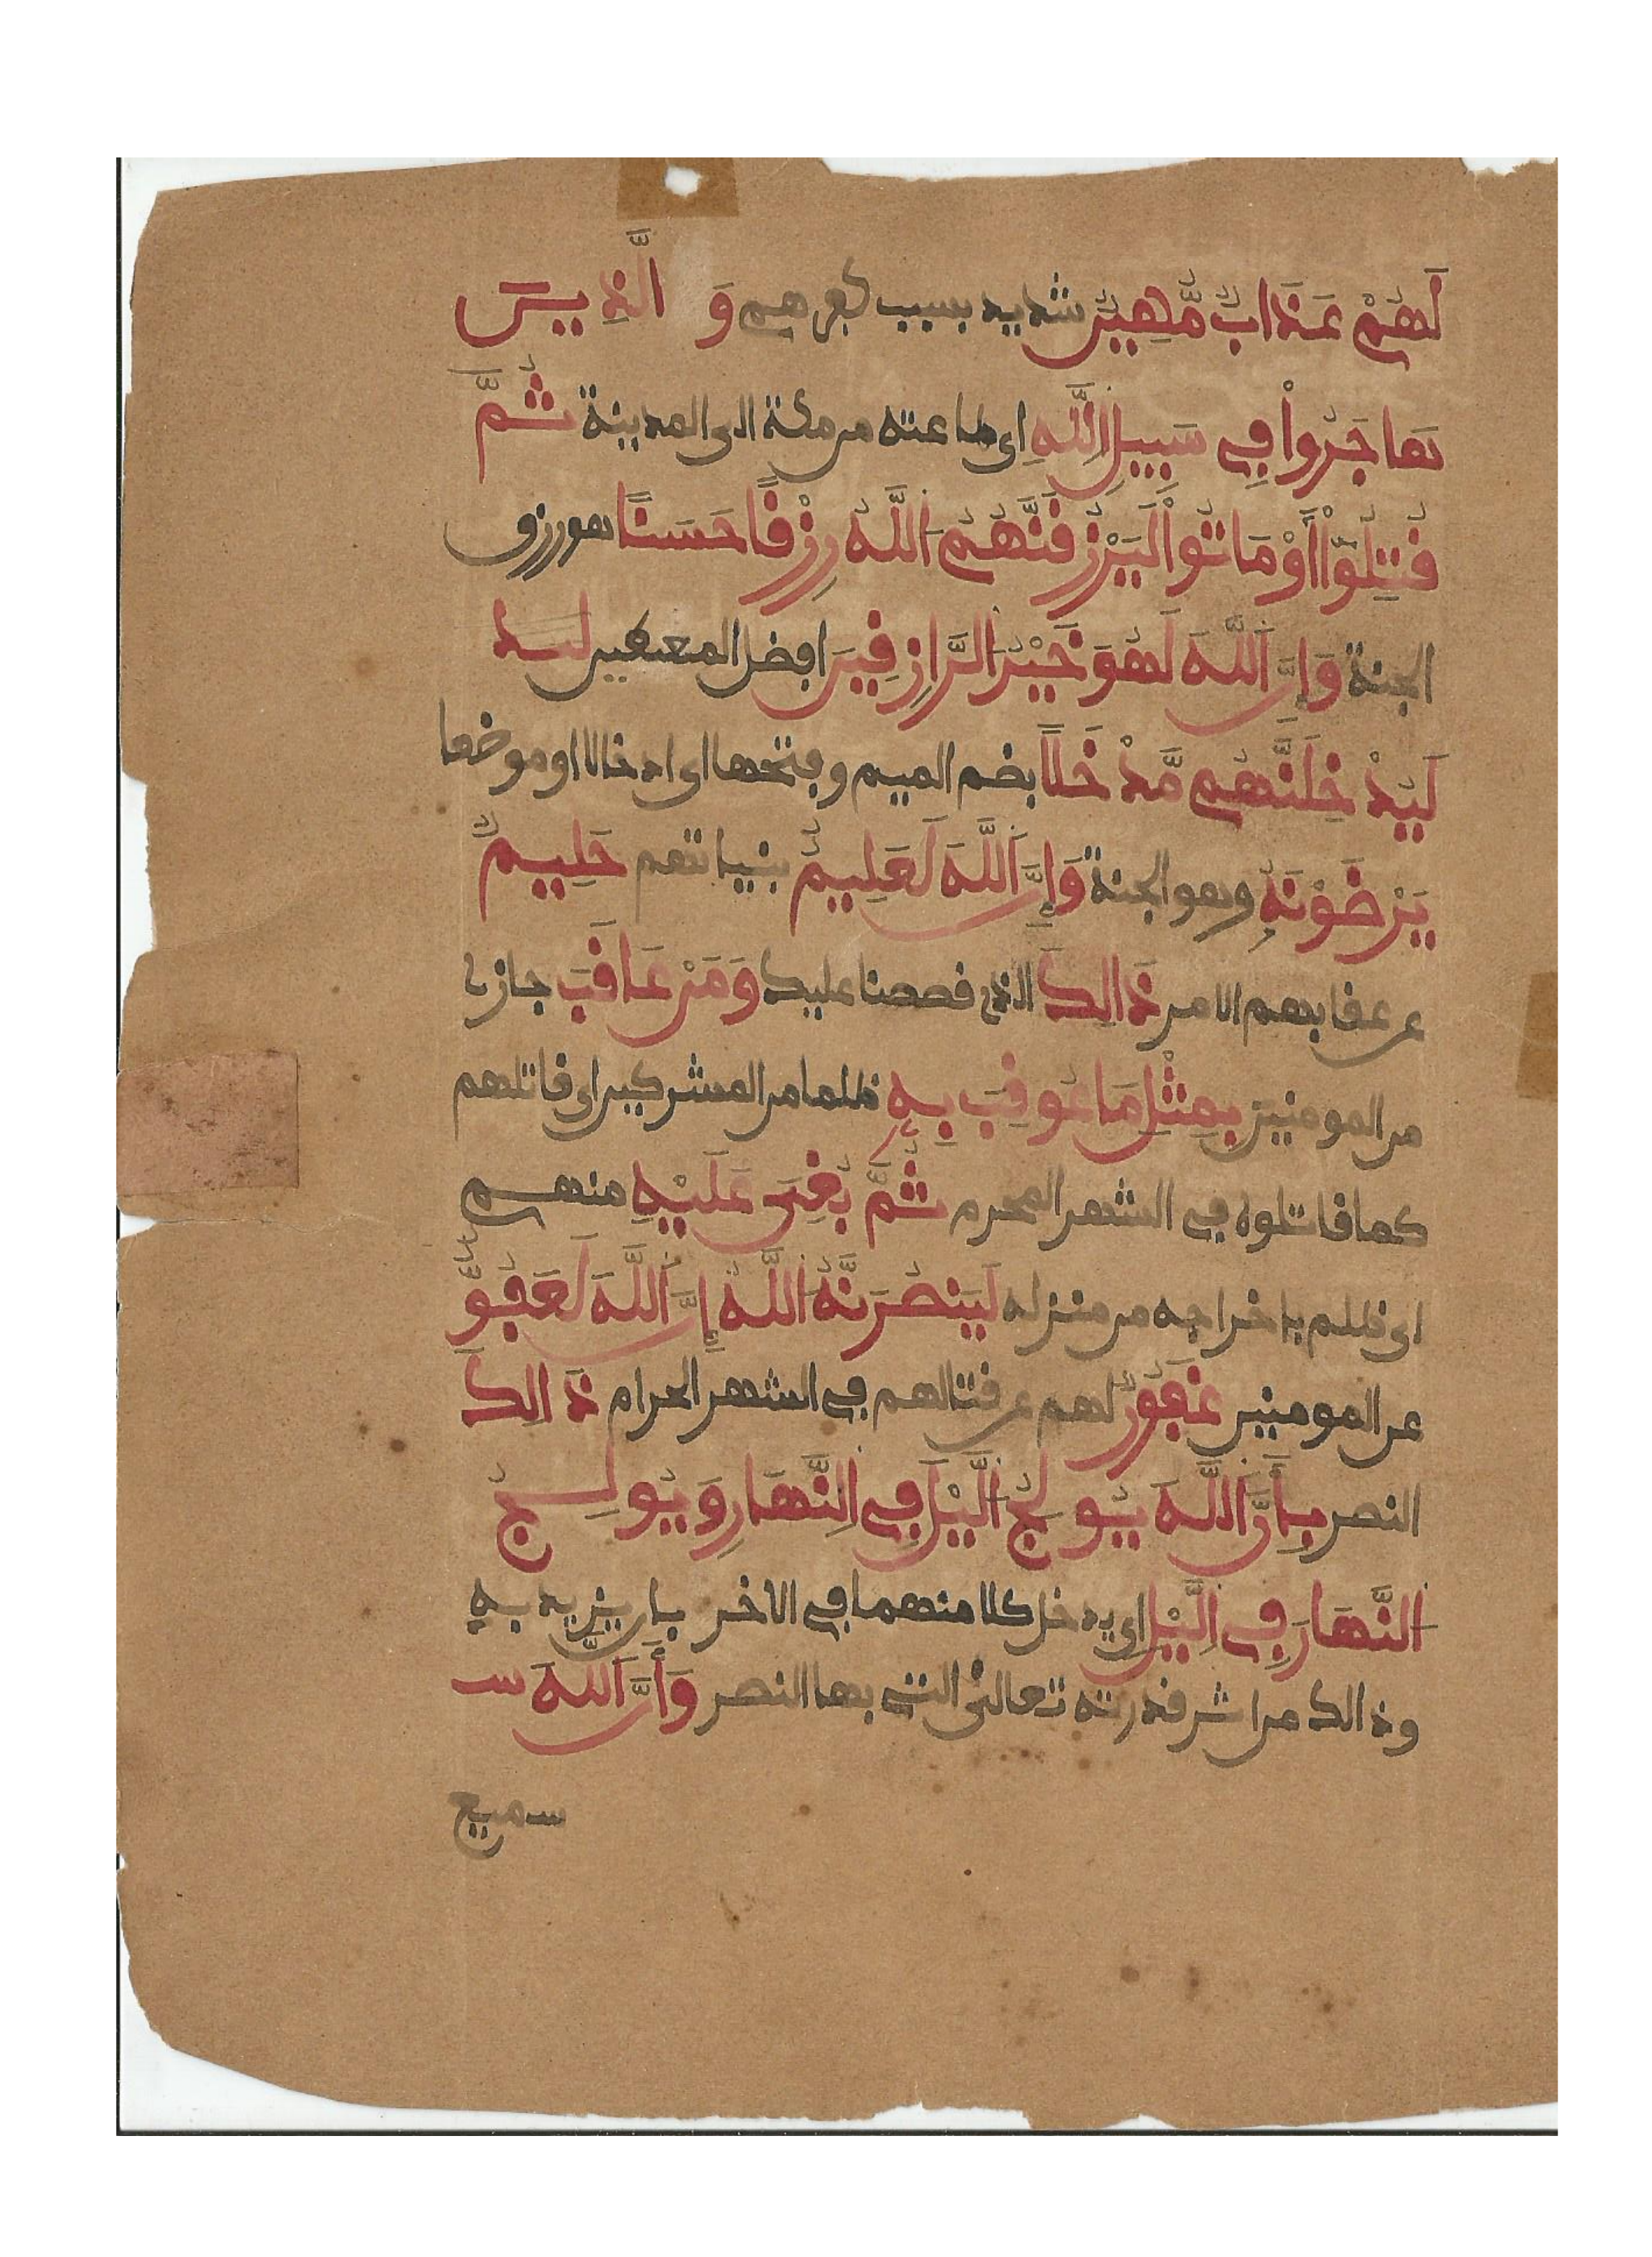 لَهُمْ عَذَابٌ مُّهِينٌ شديد بسبب كفرهم وَالَّذِينَ
هَاجَرُواْ فِي سَبِيلِ اللَّهِ اى طاعته من مكة الى المدينة ثُمَّ
قُتِلُوٓاْ أَوْ مَاتُواْ لَيَرْزُقَنَّهُمُ اللَّهُ رِزْقًا حَسَنًا هو رزق
الجنة وَإِنَّ اللَّهَ لَهُوَ خَيْرُ الرَّازِقِينَ افضل المعطين ليد
لَيُدْخِلَنَّهُم مَّدْخَلًا بضم الميم وفتحها اى ادخالا او موضعا
يَرْضَوْنَهُ وهو الجنة وَإِنَّ اللَّهَ لَعَلِيمٌ بنياتهم حَلِيمٌ
عن عقابهم الامر ذَالِكَ الذى قصصنا عليك وَمَنْ عَاقَبَ جازى
من المومنين بِمِثْلِ مَا عُوقِبَ بِهِ ظلما من المشركين اى قاتلهم
كما قاتلوه في الشهر المحرم ثُمَّ بُغِيَ عَلَيْهِ منهم
اى ظلم باخراجه من منزله لَيَنصُرَنَّهُ اللَّهُ إِنَّ اللَّهَ لَعَفُوٌّ
عن المومنين غَفُورٌ لهم عن قتالهم في الشهر الحرام ذَالِكَ
النصر بِأَنَّ اللَّهَ يُولِجُ الَّيْلَ فِي النَّهَارِ وَيُولِجُ
النَّهَارَ فِي الَّيْلِ اى يدخل كلا منهما في الاخر بان يزيد به
وذالك من اثر قدرته تعالى التى بها النصر وَأَنَّ اللَّهَ سـ
سميع